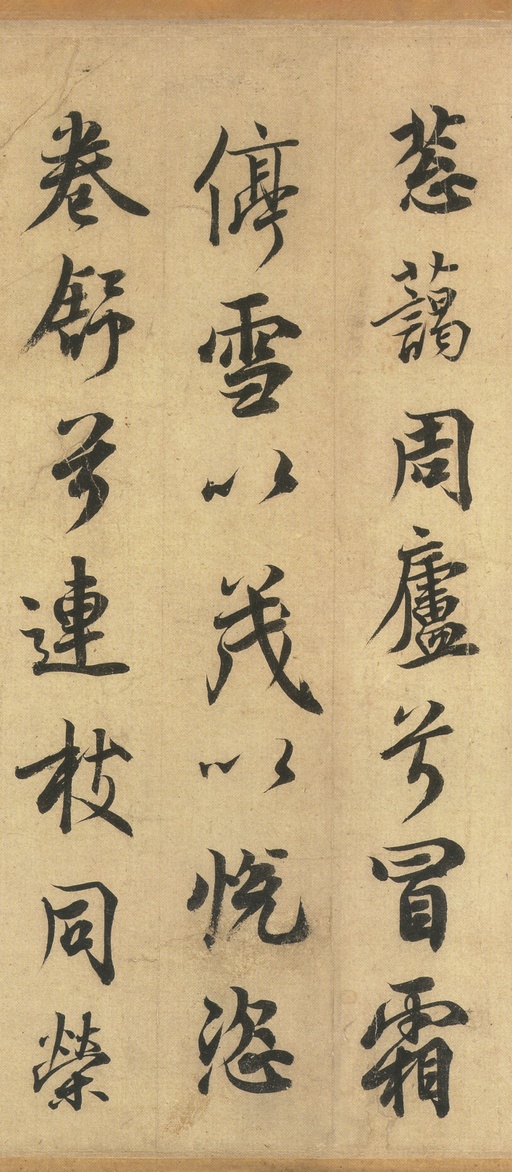 葱藹周廬兮冒霜
停雪以茂以悅恣
卷舒兮連枝同榮